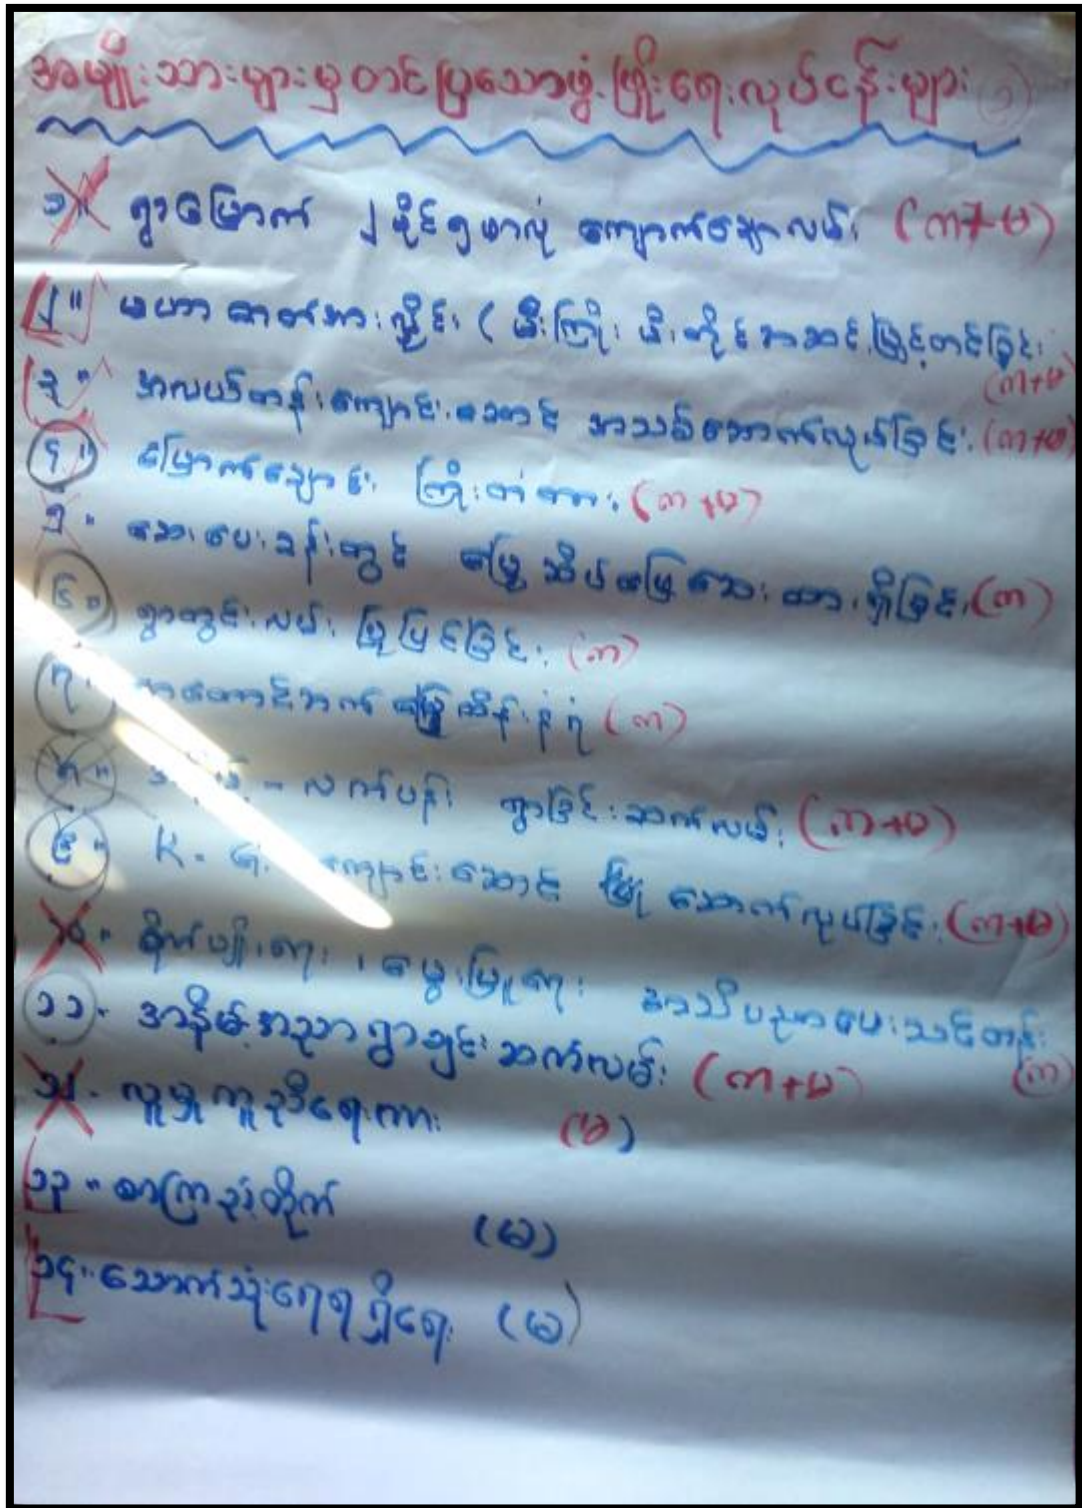 အမျိုးသားများမှတင်ပြသောဖွံ့ဖြိုးရေးလုပ်ငန်းများ (၁)
၁။ ရွာမြောက် ၂ မိုင် ၅ ဖာလုံ ကျောက်ချောလမ်း (က+မ)
၂။ မဟာဓာတ်အားလှိုင်း ( မီးကြိုး မီးတိုင်အဆင့်မြှင့်တင်ခြင်း
(က+မ)
၃။ အလယ်တန်းကျောင်းဆောင် အသစ်ဆောက်လုပ်ခြင်း (က+မ)
၄။ မြောက်ချောင်း ကြိုးတံတား (က+မ)
၅။ ဆေးပေးခန်းတွင် မြွေဆိပ်ဖြေဆေး ထားရှိခြင်း (က)
၆။ ရွာတွင်းလမ်း ပြုပြင်ခြင်း (က)
၇။ အထောင်အက် မြေထိန်းနံရံ (က)
၈။ - လက်ပန်း ရွာခြင်းဆက်လမ်း (က+မ)
၉။ K. G. ကျောင်းဆောင် မြို ဆောက်လုပ်ခြင်း (က+မ)
၁၀။ စိုက်ပျိုးရေး ၊ မွေးမြူရေး အသိပညာပေးသင်တန်း
(က)
၁၁။ အနိမ့်အညာရွာချင်းဆက်လမ်း (က+မ)
၁၂။ လူမှုကူညီရေးကား (မ)
၁၃။ စာကြည့်တိုက် (မ)
၁၄။ သောက်သုံးရေရရှိရေး (မ)